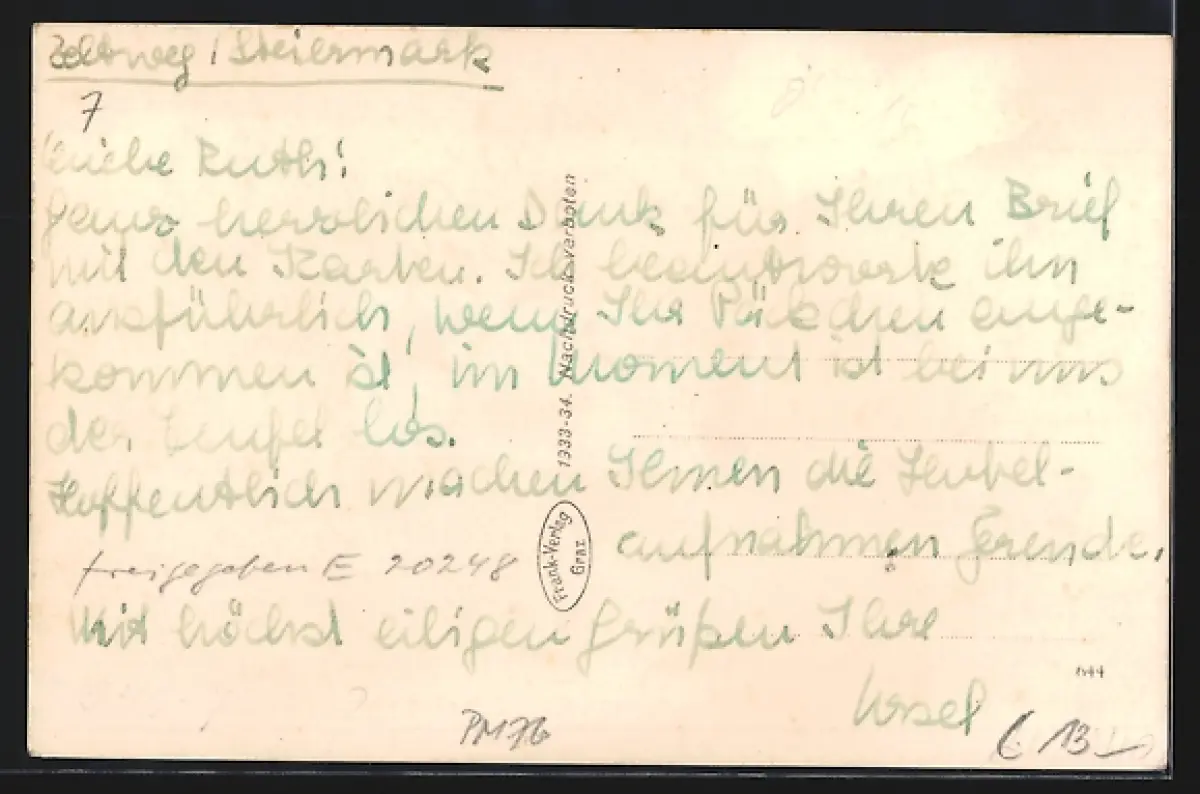 Zeltweg / Steiermark
7
Liebe Ruth!
Ganz herzlichen Dank für Ihren Brief
mit den Karten. Ich beantworte ihn
ausführlich, wenn Ihr Päckchen ange-
kommen ist, im Moment ist bei uns
der Teufel los.
Hoffentlich machen Ihnen die
aufnahmen Freude.
freigegeben E 20248
Mit höchst eiligen Grüßen Ihre
Ursel
1333-34. Nachdruck verboten
Frank-Verlag
Graz
PM76
13